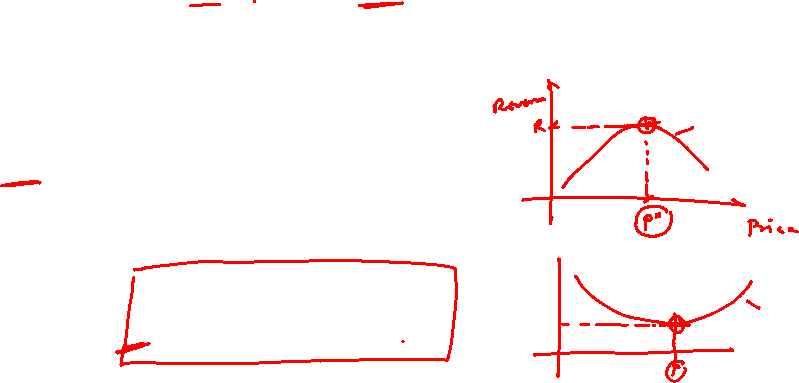 Revenue
R*
P*
Price
P